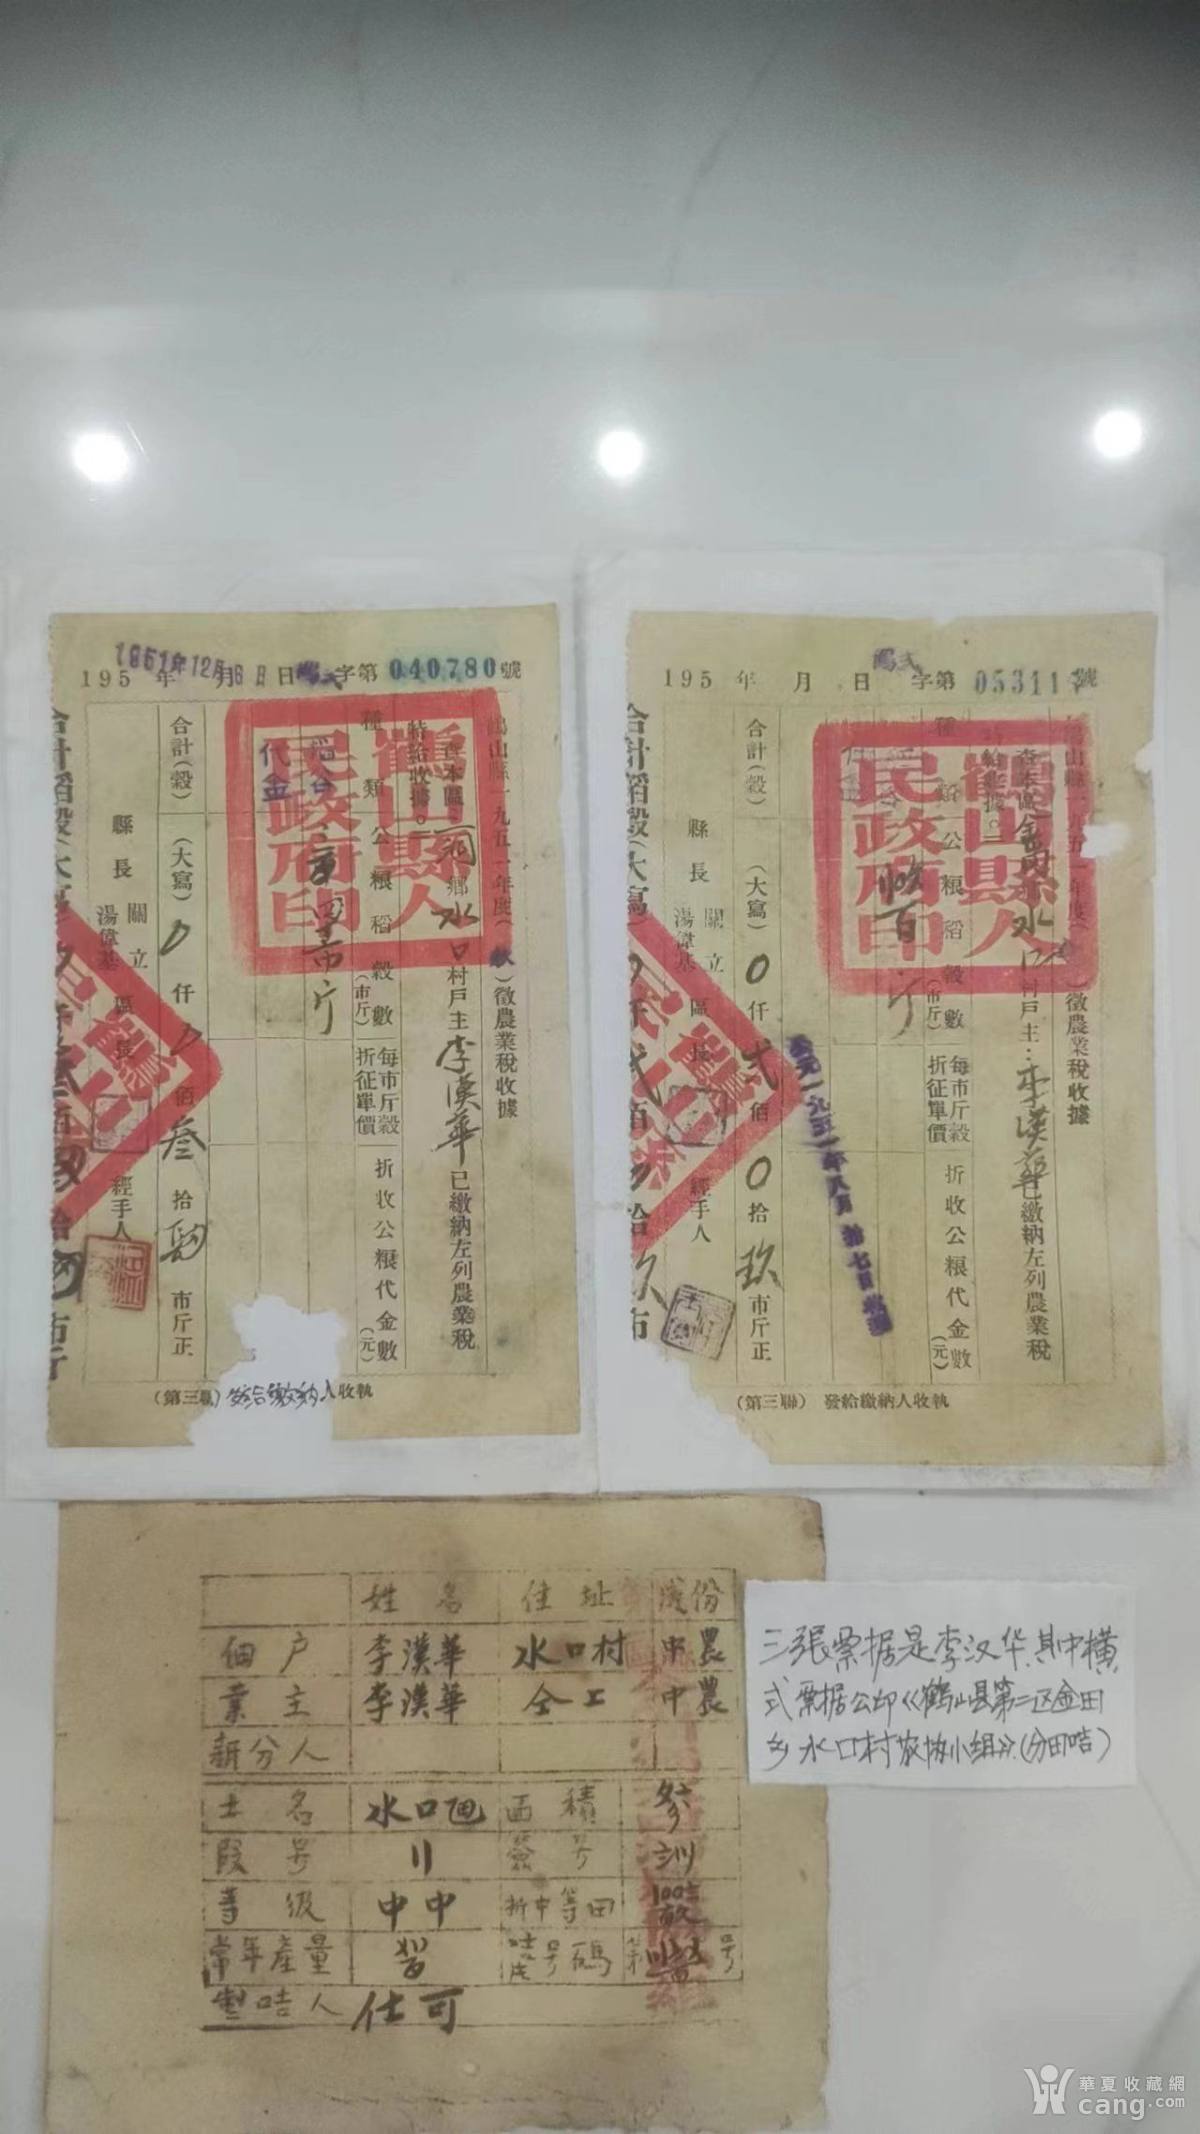 1951年12月6日
195 年 月 日 字第 040780 號
鶴山縣一九五一年度(秋)徵農業稅收據
查本區 鄉水口村戶主李漢華已繳納左列農業稅
特給收據。
種類 公糧稻穀數(市斤) 每市斤穀折征單價 折收公糧代金數(元)
稻谷
代金
合計(穀) (大寫) 0 仟 0 佰 叁 拾 市斤正
縣長 關立 湯偉基 區長 經手人
鶴山縣人民政府印
(第三聯) 發給繳納人收執
195 年 月 日 字第 05311 號
鶴山縣一九五一年度 徵農業稅收據
查本區金 水口村戶主:李漢華已繳納左列農業稅
特給收據。
種類 公糧稻穀數(市斤) 每市斤穀折征單價 折收公糧代金數(元)
公元一九五一年八月拾七日收訖
合計(穀) (大寫) 0 仟 弍 佰 0 拾 玖 市斤正
縣長 關立 湯偉基 區長 經手人
鶴山縣人民政府印
(第三聯) 發給繳納人收執
姓名 住址 成份
佃户 李漢華 水口村 中農
業主 李漢華 仝上 中農
新分人
土名 水口 面積
段号 〢
等級 中中 折中等田
常年產量 号碼 第 号
製咭人 仕可
三张票据是李汉华.其中横
式票据公印《鹤山县第二区金田
乡水口村农协小组》(分田咭)
華夏收藏網
cang.com